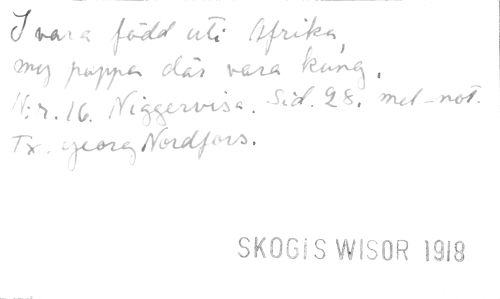 I vara född uti Afrika,
my pappa där vara kung.
N:r. 16. Niggervisa. Sid. 28. mel-not.
Tx. Georg Nordfors.
SKOGIS WISOR 1918